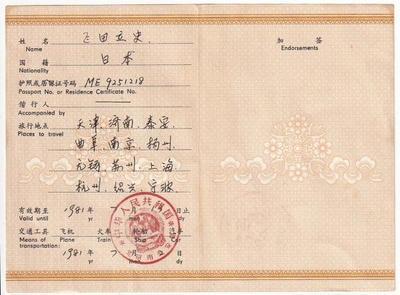 姓名 飞田立史
Name
国籍 日本
Nationality
护照或居留证号码 ME9251218
Passport No. or Residence Certificate No.
偕行人
Accompanied by
旅行地点 天津、济南、泰安、
Places to travel
曲阜、南京、扬州、
无锡、苏州、上海、
杭州、绍兴、宁波
有效期至 1981 年 7 月 日止
Valid until yr m dy
交通工具 飞机 火车 轮船 汽车
Means of transportation. Plane Train Ship Car
1981 年 7 月 日
yr m dy
中华人民共和国
加签
Endorsements